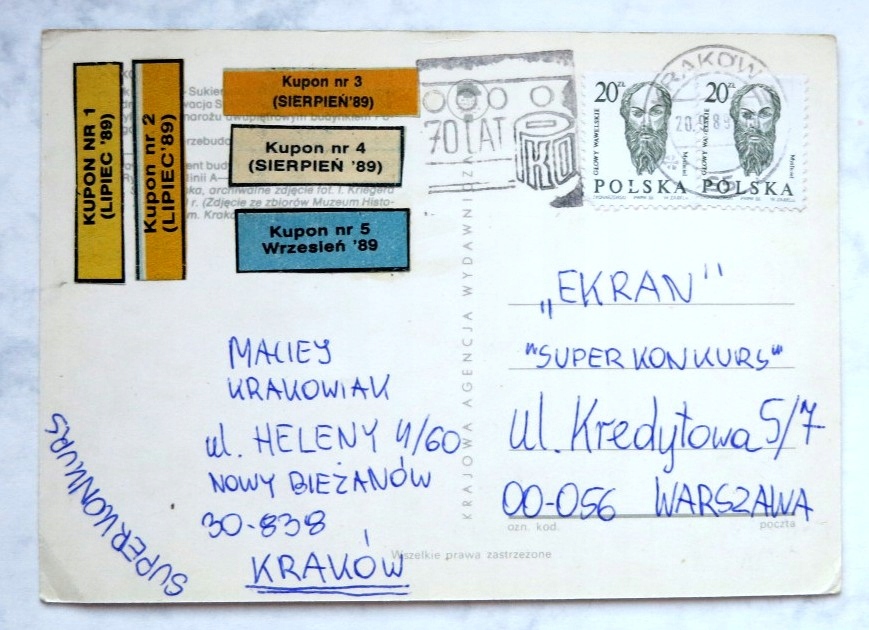 KUPON NR 1
(LIPIEC '89)
Kupon nr 2
(LIPIEC '89)
Kupon nr 3
(SIERPIEŃ'89)
Kupon nr 4
(SIERPIEŃ '89)
Kupon nr 5
Wrzesień '89
Sukien
archiwalne zdjęcie fot. I. Kriegera
r (Zdjęcie ze zbiorów Muzeum Histo-
m. Krako
70 LAT
PKO
KRAKÓW
20 ZŁ
GŁOWY WAWELSKIE
POLSKA
20 ZŁ
GŁOWY WAWELSKIE
POLSKA
KRAJOWA AGENCJA WYDAWNICZA
„EKRAN"
"SUPER KONKURS"
ul. Kredytowa 5/7
00-056 WARSZAWA
ozn. kod. poczta
MACIEJ
KRAKOWIAK
ul. HELENY 4/60
NOWY BIEŻANÓW
30-838
KRAKÓW
SUPER KONKURS
Wszelkie prawa zastrzeżone